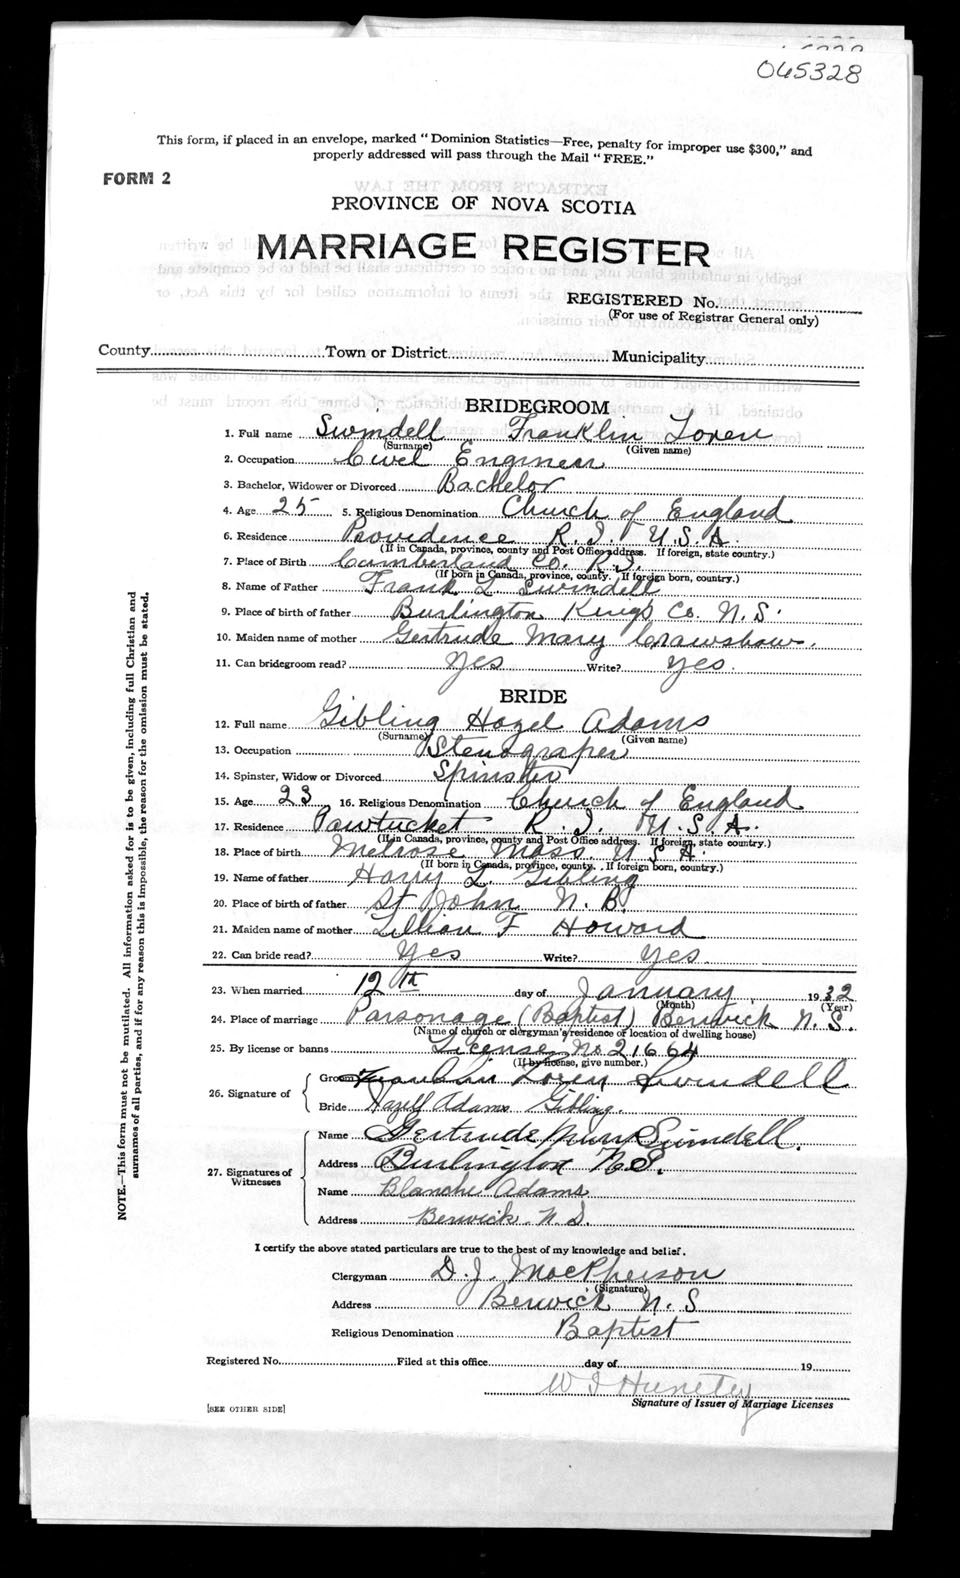 065328
This form, if placed in an envelope, marked "Dominion Statistics—Free, penalty for improper use $300," and
properly addressed will pass through the Mail "FREE."
FORM 2
PROVINCE OF NOVA SCOTIA
MARRIAGE REGISTER
REGISTERED No.
(For use of Registrar General only)
County Town or District Municipality
BRIDEGROOM
1. Full name Swindell Franklin Loren
(Surname) (Given name)
2. Occupation Civel Engineer
3. Bachelor, Widower or Divorced Bachelor
4. Age 25 5. Religious Denomination Church of England
6. Residence Providence R. I. U.S.A.
(If in Canada, province, county and Post Office address. If foreign, state country.)
7. Place of Birth Cumberland Co. R.I.
(If born in Canada, province, county. If foreign born, country.)
8. Name of Father Frank L. Swindell
9. Place of birth of father Burlington Kings Co. N.S.
10. Maiden name of mother Gertrude Mary Crawshaw.
11. Can bridegroom read? Yes Write? Yes.
BRIDE
12. Full name Gibling Hazel Adams
(Surname) (Given name)
13. Occupation Stenograper
14. Spinster, Widow or Divorced Spinster
15. Age 23 16. Religious Denomination Church of England
17. Residence Pawtucket R. I. U.S.A.
(If in Canada, province, county and Post Office address. If foreign, state country.)
18. Place of birth Melrose Mass. U S A.
(If born in Canada, province, county. If foreign born, country.)
19. Name of father Harry L. Gibling
20. Place of birth of father St John N. B.
21. Maiden name of mother Lillian F Howard
22. Can bride read? Yes Write? Yes.
23. When married 12th day of January 1932
(Month) (Year)
24. Place of marriage Parsonage (Baptist) Berwick N.S.
(Name of church or clergyman's residence or location of dwelling house)
25. By license or banns License No 21664
(If by license, give number.)
26. Signature of
Groom Franklin Loren Swindell
Bride Hazel Adams Gibling.
27. Signatures of Witnesses
Name Gertrude Mary Swindell.
Address Burlington N.S.
Name Blanche Adams
Address Berwick. N.S.
I certify the above stated particulars are true to the best of my knowledge and belief.
Clergyman D. J. MacPherson
(Signature)
Address Berwick N. S
Religious Denomination Baptist
Registered No. Filed at this office day of 19
Signature of Issuer of Marriage Licenses
[SEE OTHER SIDE]
NOTE.—This form must not be mutilated. All information asked for is to be given, including full Christian and
surnames of all parties, and if for any reason this is impossible, the reason for the omission must be stated.